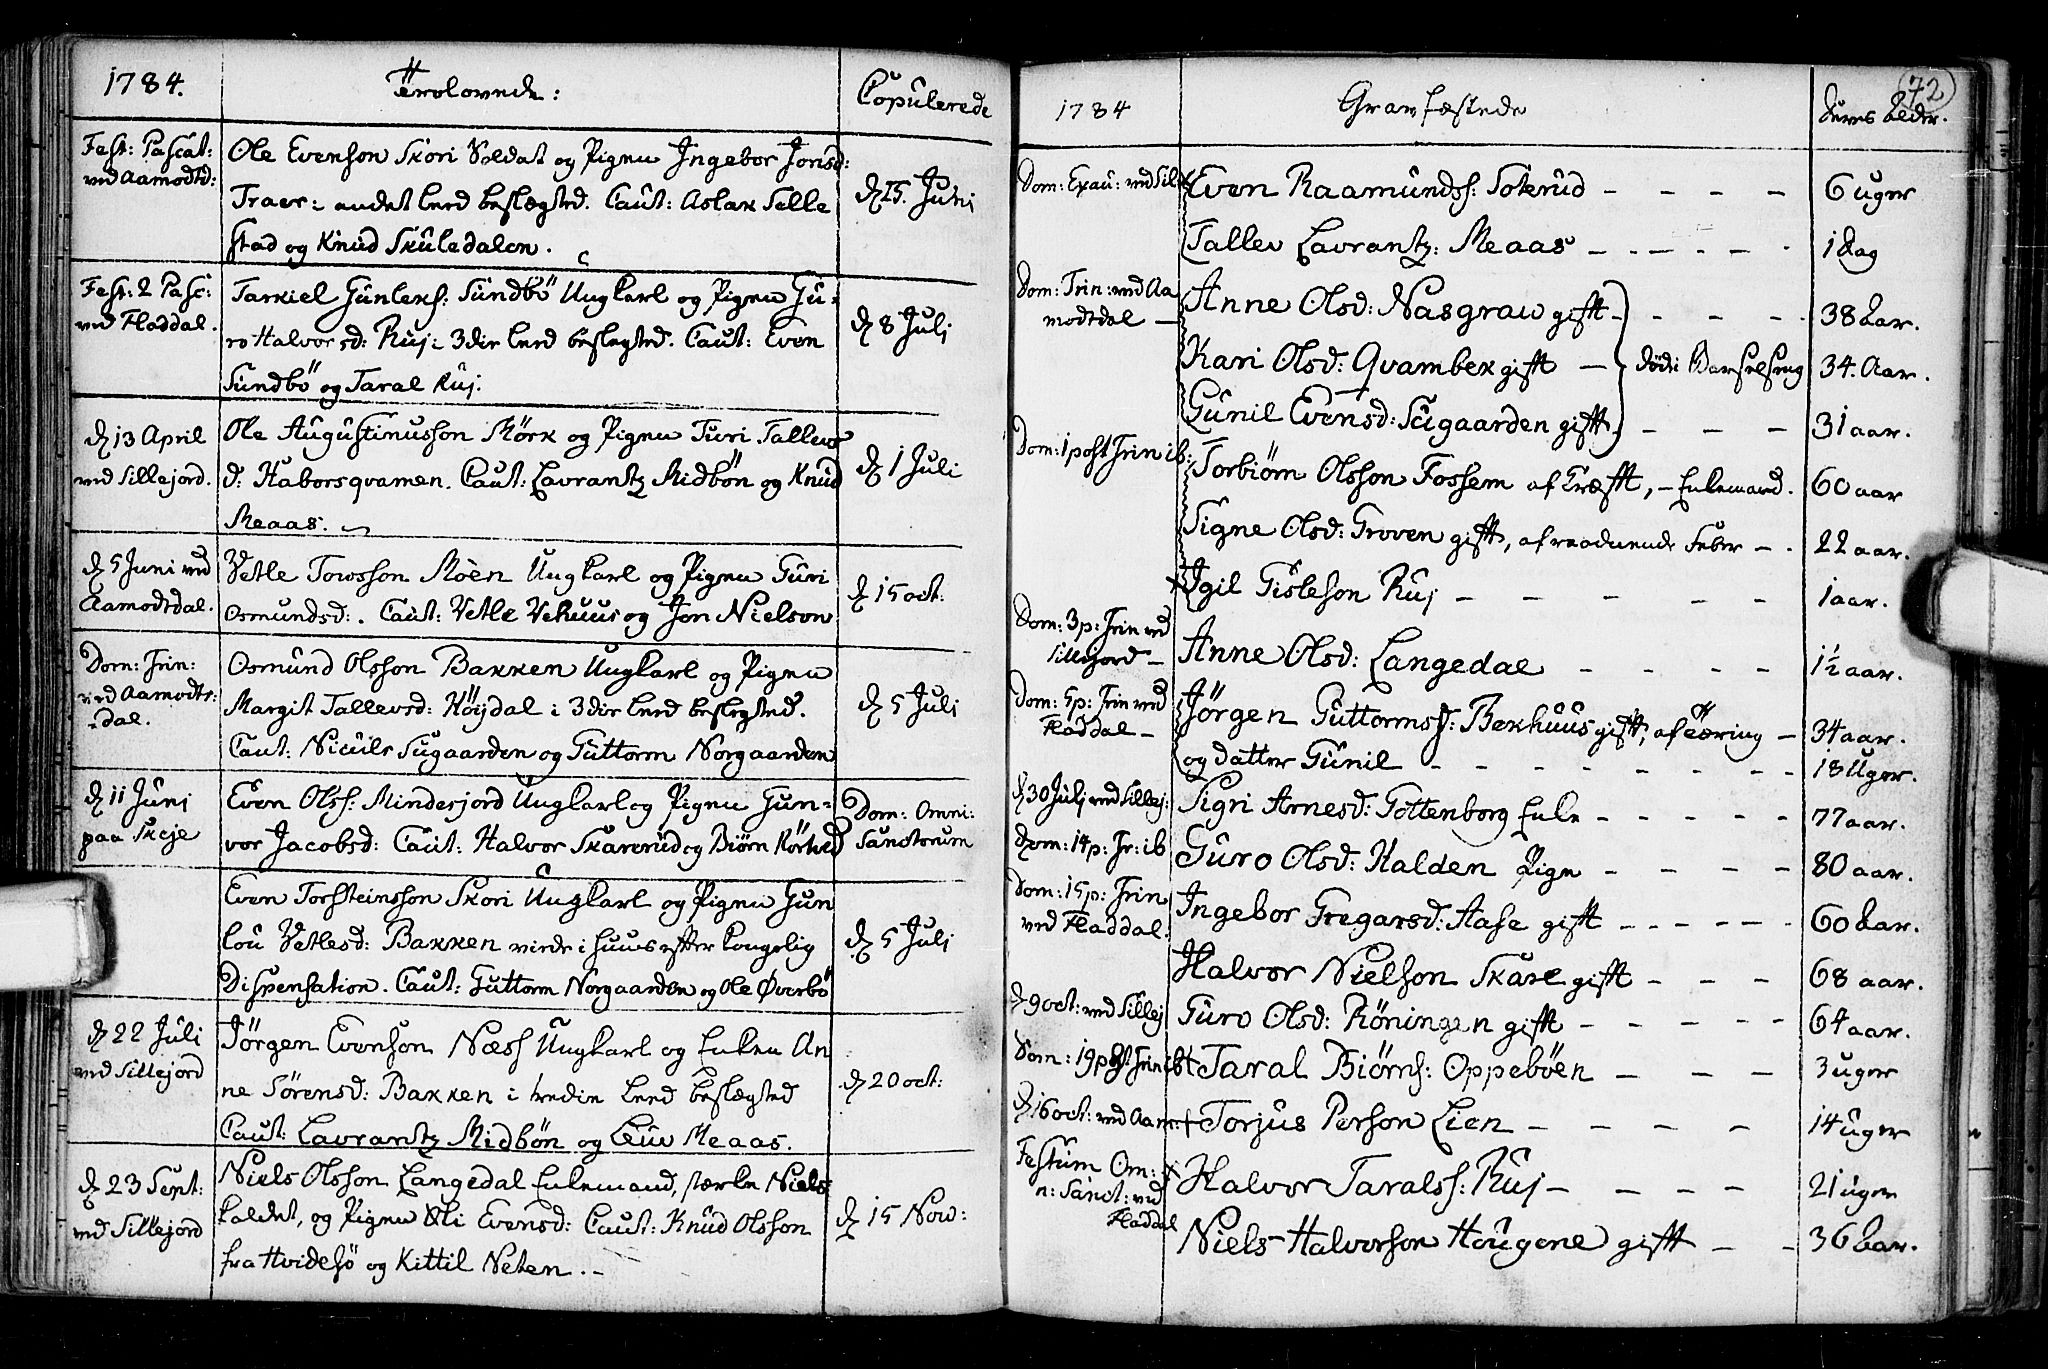 1784.
Trolovede:
Copulerede
Fest: Pascat:
ved Aamodtd:
Ole Evenson Skori Soldat og Pigen Ingebor Jonsd:
Traer: andet leed beslægted. Caut: Aslak Selle
stad og Knud Skuledalen.
d 15. Juni
Fest: 2 Pasc:
ved Fladdal.
Tarkiel Gunleks: Sundbö Ungkarl og Pigen Gu-
ro Halvorsd: Ruj: 3die leed beslegted. Caut: Even
Sundbö og Taral Ruj.
d 8 Juli
d 13 April
ved Sillejord.
Ole Augustinusson Mörk og Pigen Turi Tallevs
d: Haborsqvamen. Caut: Lavrantz Midbön og Knud
Meaas.
d 1 Juli
d 5 Juni ved
Aamodtdal.
Vetle Tovsson Möen Ungkarl og Pigen Guri
Osmundsd:. Caut: Vetle Vehuus og Jon Nielson
d 15 oct:
Dom: Trin:
ved Aamodts:
-dal.
Osmund Olsson Bakken Ungkarl og Pigen
Margit Tallevsd: Höijdal i 3die leed beslegted.
Caut: Niculs Sugaarden og Guttorm Norgaarden
d 5 Juli
d 11 Junj
paa Skeje
Even Olss: Mindesjord Ungkarl og Pigen Gun-
vor Jacobsd: Caut: Halvor Skarerud og Biörn Rörhed
Dom: Omni:
Sanctorum
Even Torsteinsson Skori Ungkarl og Pigen Gun
lou Vetlesd: Bakken viede i huus efter kongelig
Dispensation. Caut: Guttorm Norgaarden og Ole Överbö
d. 5 Juli
d 22 Juli
ved Sillejord
Jörgen Evenson Næss Ungkarl og Enken An
ne Sörensd: Bakken i tredie leed beslægted
Caut: Lavrantz Midbön og Leiv Meaas.
d 20 oct:
d 23 Sept:
ved Sillejord
Niels Olsson Langedal Enkemand, stærke Niels
kaldet, og Pigen Evensd: Caut: Knud Olsson
fra Hvidesö og Kittil Neten.
d 15 Nov:
72
1784
Gravfæstede
deres alder.
Dom: Exau: ved Sil
Even Raamunds: Sokrud - - - -
6 uger
Tallev Lavrantz: Meaas - - - - -
1 dag
Dom: Trin: ved Aa
modtdal -
Anne Olsd: Nasgrav gift - - - -
38 aar.
Kari Olsd: Qvambek gift - död i Barselseng
34. Aar.
Gunil Evensd: Sugaarden gift - - - -
31 aar.
Dom: 1 post Trin ib:
Torbiörn Olsson Fossem af Kræfft, - Enkemand.
60 aar
Signe Olsd: Groven gift, af raadnende Feber -.
22 aar.
Igil Gisleson Ruj - - - - -
1 aar.
Dom: 3 p: Trin ved
Sillejord -
Anne Olsd: Langedal - - - -
1½ aar.
Dom: 5 p: Trin ved
Fladdal -
Jörgen Guttorms: Bekhuus gift, af tæring -
34 aar.
og datter Gunil - - - - - - - -
18 Uger.
d 30 Julj ved Sillej:
Sigri Arnesd: Gottenborg Enke - - - - -
77 aar.
Dom: 14 p: Tr: ib
Guro Olsd: Kalden Pige - - - -
80 aar.
Dom: 15 p: Trin
ved Fladdal.
Ingebor Gregarsd: Aase gift - - - - - -
60 aar.
Halvor Nielson Skare gift - - -
68 aar.
d 9 oct: ved Sillej
Guro Olsd: Röningen gift - - - - -
64 aar.
Dom: 19 post Trin ib
Taral Biörns: Oppeböen - - -
3 uger
d 16 oct: ved Aam:
Torjus Person Lien - - - -
14 uger
Festum Om:
n: Sanct: ved
Fladdal
Halvor Tarals: Ruj - - - -
21 uger
Niels Halvorson Hougene gift - -
36 aar.